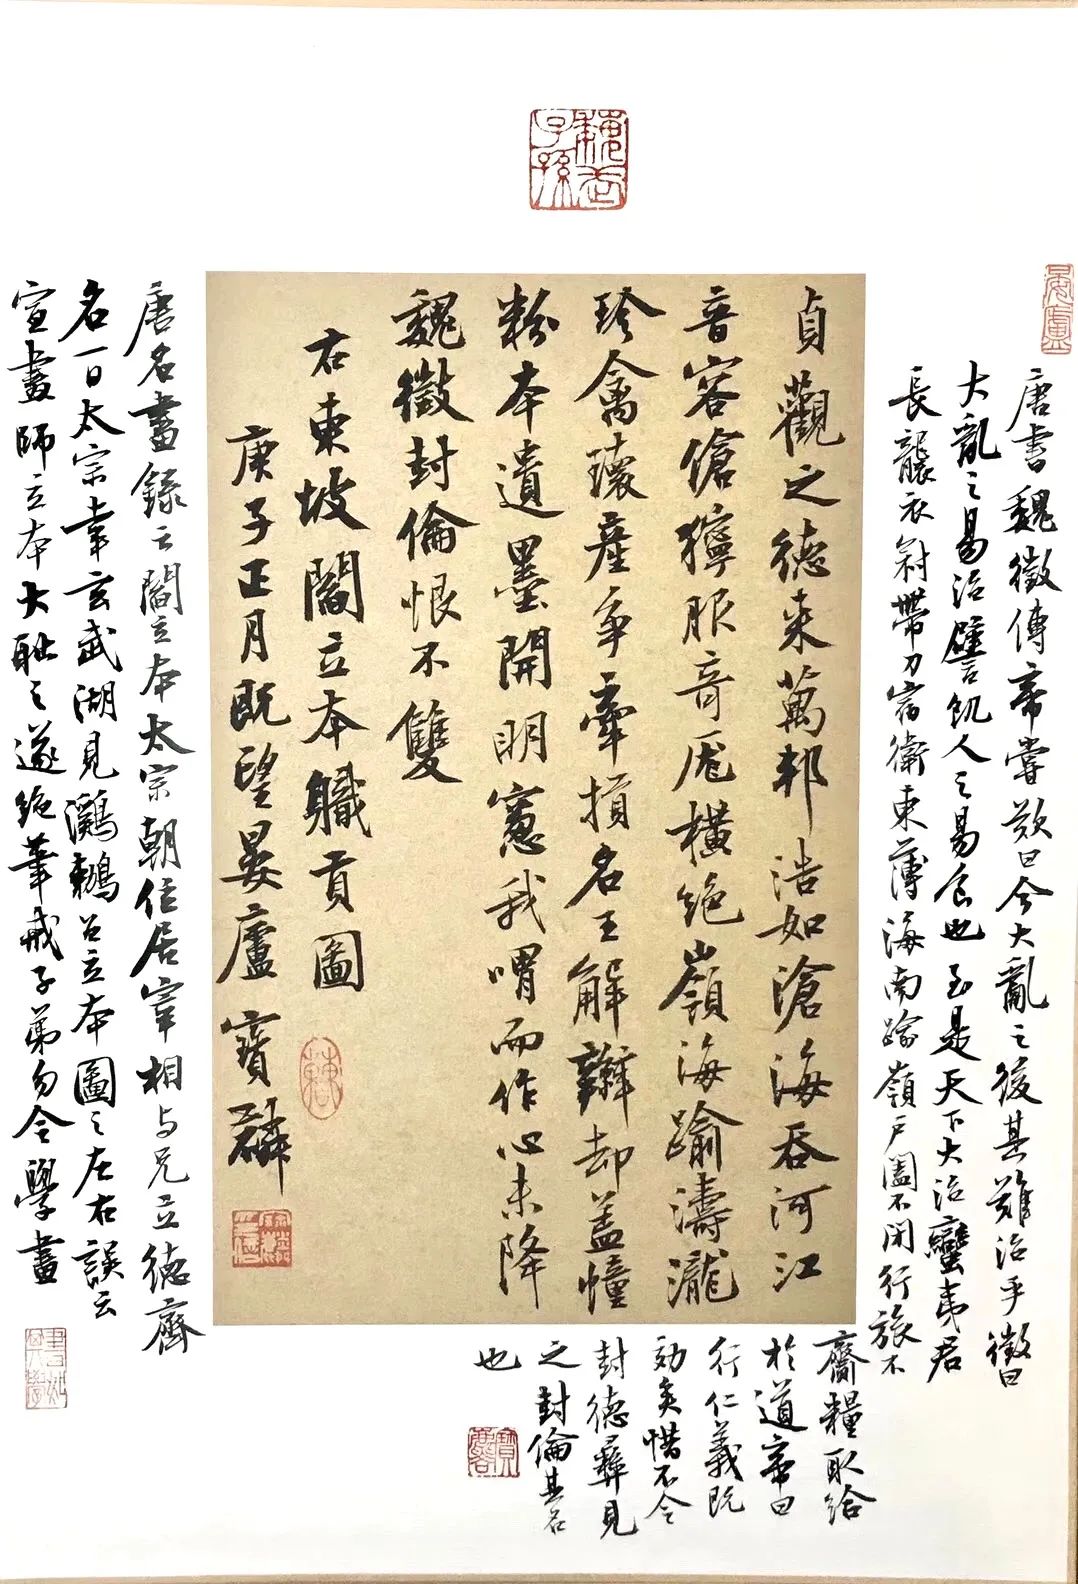 貞觀之德來萬邦浩如滄海吞河江
音容傖獰服奇厖橫絕嶺海踰濤瀧
珍禽瓌產爭牽損名王解辮却蓋幢
粉本遺墨開明窻我喟而作心未降
魏徵封倫恨不雙
右東坡閻立本職貢圖
庚子正月既望晏廬寶麟
唐書魏徵傳帝嘗歎曰今大亂之後其難治乎徵曰
大亂之易治譬飢人之易食也至是天下大治蠻夷君
長襲衣冠帶刀宿衛東薄海南踰嶺戶闔不閉行旅不
齎糧取給
於道帝曰
行仁義既
効矣惜不令
封德彝見
之封倫其名
也
唐名畫錄云閻立本太宗朝位居宰相与兄立德齊
名一日太宗幸玄武湖見鸂鶒召立本圖之左右誤云
宣畫師立本大恥之遂絕筆戒子弟勿令學畫
晏廬